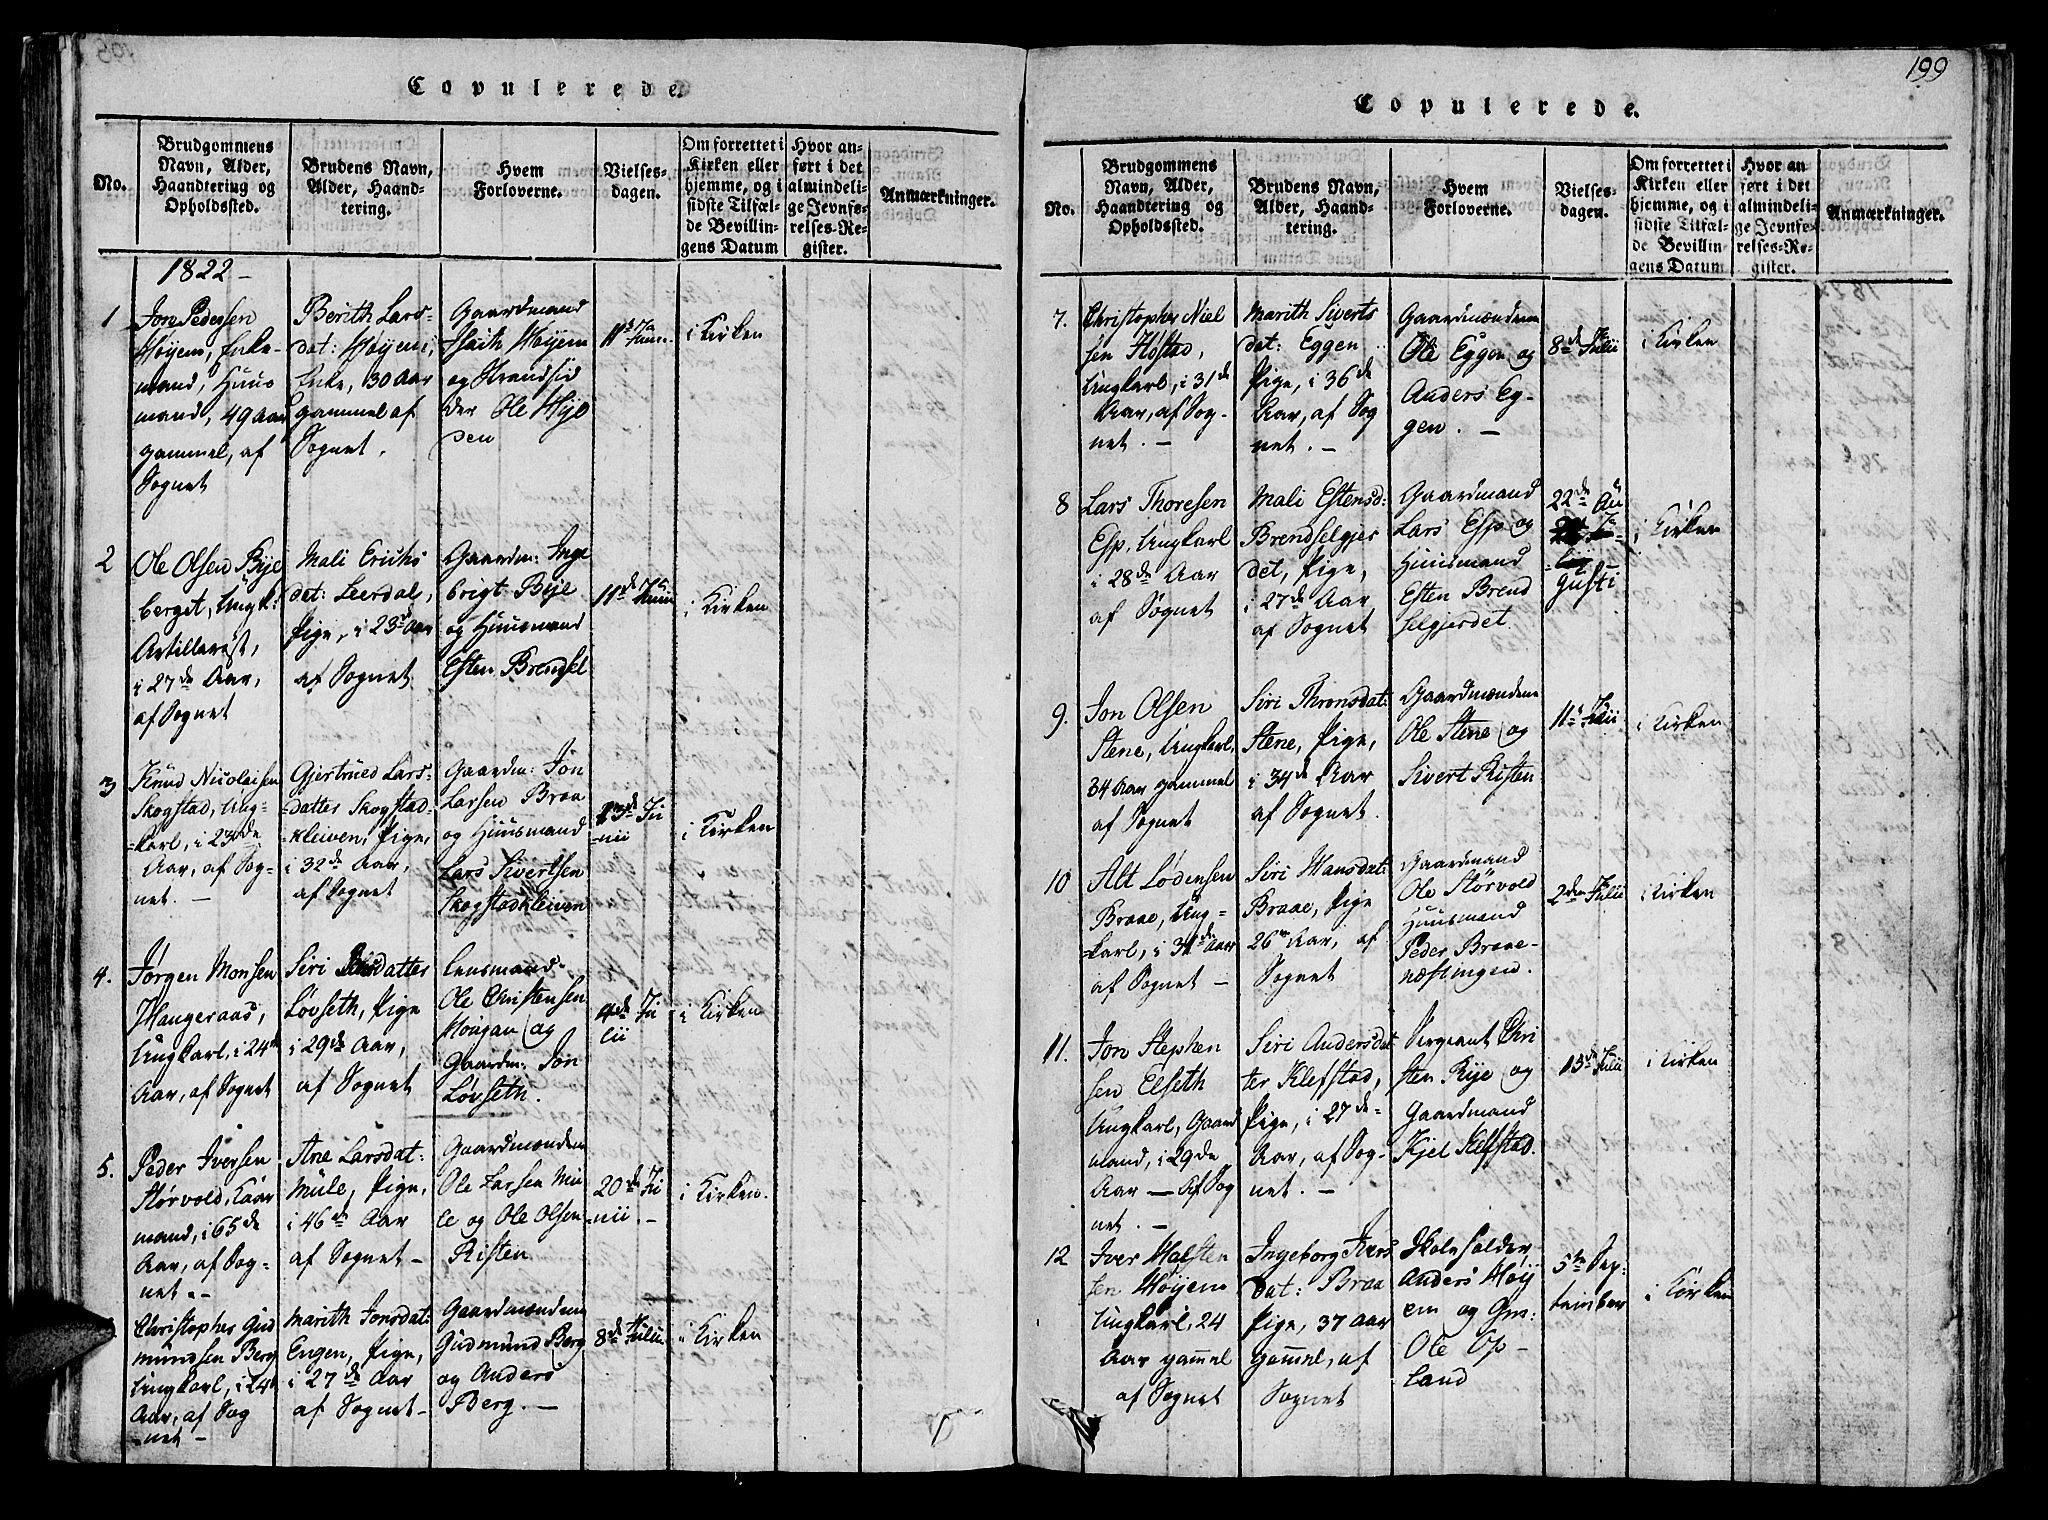 199
Copulerede.
No.
Brudgommens
Navn, Alder,
Haandtering og
Opholdssted.
Brudens Navn,
Alder, Haand-
tering.
Hvem
Forloverne.
Vielses-
dagen.
Om forrettet i
Kirken eller
hjemme, og i
sidste Tilfæl-
de Bevillin-
gens Datum
Hvor an-
ført i det
almindeli-
ge Jevnfø-
relses-Re-
gister.
Anmærkninger.
1822 -
1
Jon Pedersen
Høyem, Enke-
mand, Huus
mand, 49 aar
gammel, af
Sognet
Berith Lars-
dat: Høyem,
Enke, 30 Aar
gammel af
Sognet.
Gaardmand
Høyem
og Strandsid
der Ole
11te
i Kirken
2
Ole Olsen Bye
berget, Ungk:
Artillerist,
i 27de Aar,
af Sognet
Mali Erichs
dat: Leerdal,
Pige, i 23de Aar
af Sognet.
Gaardm: Inge
brigt Bye
og Huusmand
Esten Brendsel
11de Junii
i Kirken
3
Knud Nicolaisen
Skogstad, Ung-
karl, i 23de
Aar, af Sog-
net. -
Gjertrued Lars-
datter Skogstad-
kleiven, Pige,
i 32de Aar,
af Sognet
Gaardm: Jon
Larsen Braa
og Huusmand
Lars Sivertsen
Skogstadkleiven
13de Ju
nii
i Kirken
4.
Jørgen Monsen
Haugeraas,
Ungkarl, i 24de
Aar, af Sognet
Siri datter
Løvseth, Pige
i 29de Aar,
af Sognet
Lensmand
Ole Christensen
Hougan og
Gaardm: Jon
Løvseth.
4de Ju
lii
i Kirken
5.
Peder Iversen
Størvold, Gaar
mand, i 65de
Aar, af Sog-
net. -
Ane Larsdat:
Mule, Pige,
i 46de Aar
af Sognet -
Gaardmændene
Ole Larsen Mu
le og Ole Olsen
Risten
20de Ju
nii. -
i Kirken.
Christopher Gud
mundsen Berg
Ungkarl, i 24de
Aar, af Sog
net -
Marith Jonsdat:
Engen, Pige,
i 27de Aar
af Sognet -
Gaardmændene
Gudmund Berg
og Anders
Berg. -
8de Julii
i Kirken
Copulerede.
No.
Brudgommens
Navn, Alder,
Haandtering og
Opholdssted.
Brudens Navn,
Alder, Haand-
tering.
Hvem
Forloverne.
Vielses-
dagen.
Om forrettet i
Kirken eller
hjemme, og i
sidste Tilfæl-
de Bevillin-
gens Datum
Hvor an-
ført i det
almindeli-
ge Jevnfø-
relses-Re-
gister.
Anmærkninger.
7.
Christopher Niel
sen Hofstad,
Ungkarl, i 31de
Aar, af Sog-
net. -
Marith Siverts
dat: Eggen
Pige, i 36de
Aar, af Sog
net. -
Gaardmændene
Ole Eggen og
Anders Eg-
gen. -
8de Julii
i Kirken
8
Lars Thoresen
Esp, Ungkarl
i 28de Aar
af Sognet
Mali Estensd:
Brendselgjer
det, Pige,
i 27de Aar
af Sognet
Gaardmand
Lars Esp og
Huusmand
Esten Brend
selgjerdet
22de Au
gusti
i Kirken
9.
Jon Olsen
Stene, Ungkarl,
34 Aar gammel
af Sognet
Siri Thronsdat:
Stene, Pige,
i 34de Aar
af Sognet.
Gaardmændene
Ole Stene og
Sivert Risten
11te Julii
i Kirken
10
Alt Lodensen
Braae, Ung-
karl, i 31de Aar
af Sognet -
Siri Hansdat:
Braae, Pige
26 Aar, af
Sognet
Gaardmand
Ole Størvold
Huusmand
Peder Braae-
næstingen.
2den Julii
i Kirken
11.
Jon Stephen
sen Elseth
Ungkarl, Gaard
mand, i 29de
Aar - af Sog
net. -
Siri Andersdat
ter Klefstad,
Pige, i 27de
Aar, af Sog-
net. -
Sergeant Chri
sten Rye og
Gaardmand
Kjel Klefstad.
15de Julii
i Kirken
12
Iver Halsten
sen Høyem
Ungkarl, 24
Aar gam̄el
af Sognet
Ingeborg Ivers
dat: Braa
Pige, 37 Aar
gam̄el, af
Sognet
Skoleholder
Anders Høy
em og Gm:
Ole Op-
land
5te Sep-
tember
i Kirken